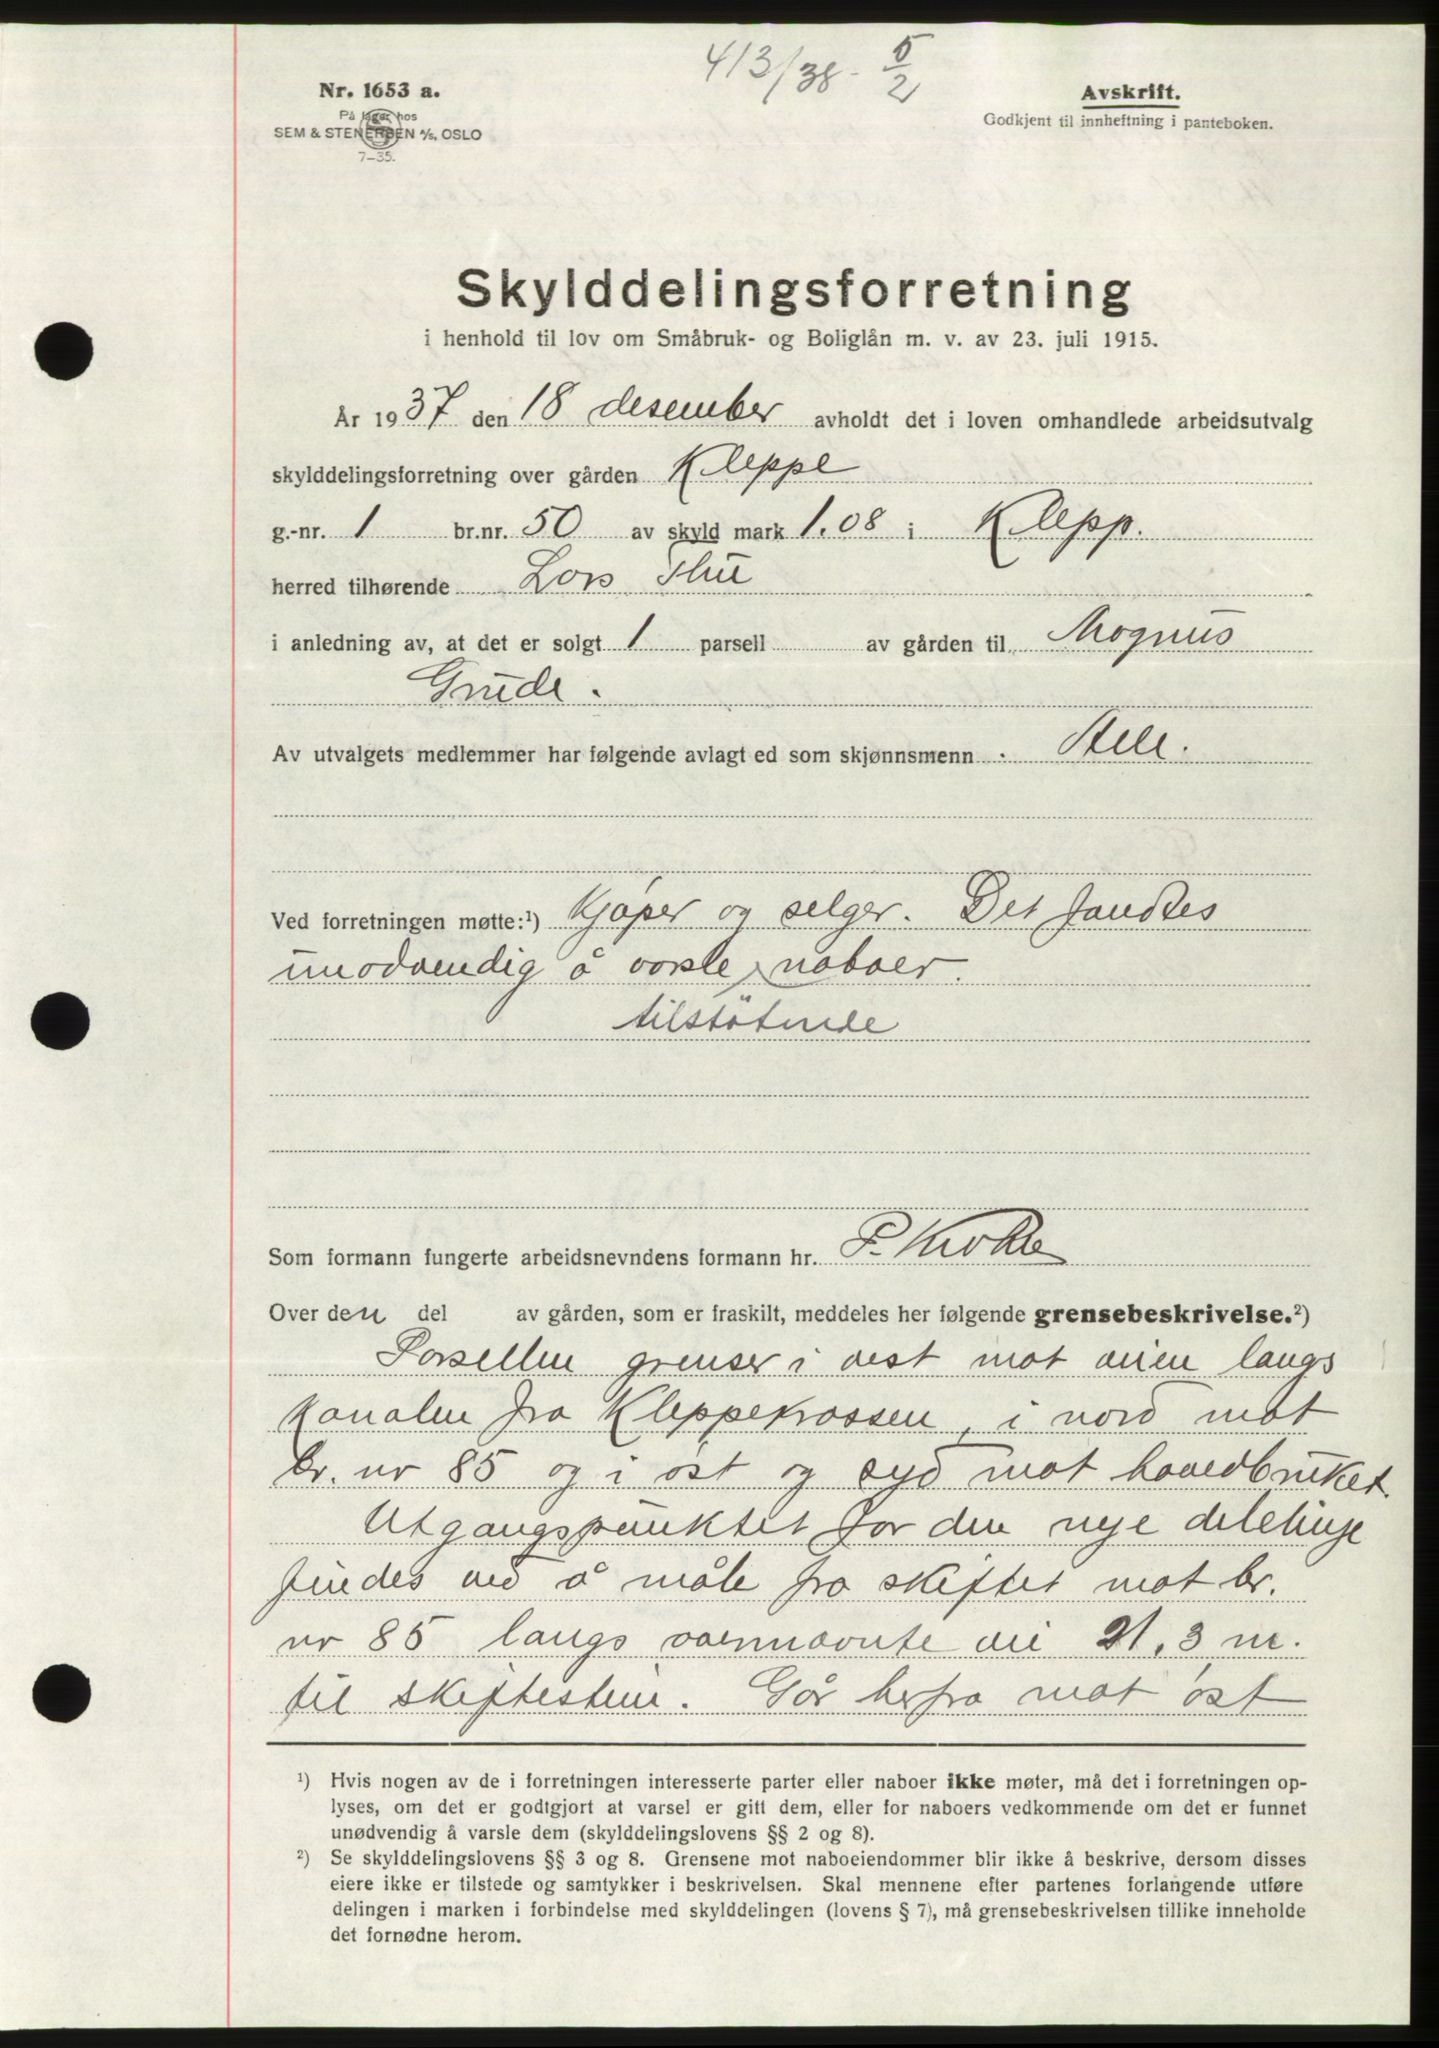 413/38 - 5/2
Nr. 1653 a.
På lager hos
SEM & STENERSEN A/S, OSLO
7—35.
Avskrift.
Godkjent til innheftning i panteboken.
Skylddelingsforretning
i henhold til lov om Småbruk- og Boliglån m. v. av 23. juli 1915.
År 1937 den 18 desember avholdt det i loven omhandlede arbeidsutvalg
skylddelingsforretning over gården Kleppe
g.-nr. 1 br.nr. 50 av skyld mark 1.08 i Klepp.
herred tilhørende Lars Thu
i anledning av, at det er solgt 1 parsell av gården til Magnus
Grude.
Av utvalgets medlemmer har følgende avlagt ed som skjønnsmenn . Alle.
Ved forretningen møtte:¹) Kjøper og selger. Det fandtes
unødvendig å varsle naboer.
tilstøtende
Som formann fungerte arbeidsnevndens formann hr. P. Krokke
Over den del av gården, som er fraskilt, meddeles her følgende grensebeskrivelse.²)
Parsellen grenser i vest mot veien langs
kanalen fra Kleppekrossen, i nord mot
br. nr 85 og i øst og syd mot hovedbruket.
Utgangspunktet for den nye delelinje
findes ved å måle fra skiftet mot br.
nr 85 langs vornævnte vei 21.3 m.
til skiftestein. Går herfra mot øst
¹) Hvis nogen av de i forretningen interesserte parter eller naboer ikke møter, må det i forretningen op-
lyses, om det er godtgjort at varsel er gitt dem, eller for naboers vedkommende om det er funnet
unødvendig å varsle dem (skylddelingslovens §§ 2 og 8).
²) Se skylddelingslovens §§ 3 og 8. Grensene mot naboeiendommer blir ikke å beskrive, dersom disses
eiere ikke er tilstede og samtykker i beskrivelsen. Skal mennene efter partenes forlangende utføre
delingen i marken i forbindelse med skylddelingen (lovens § 7), må grensebeskrivelsen tillike inneholde
det fornødne herom.